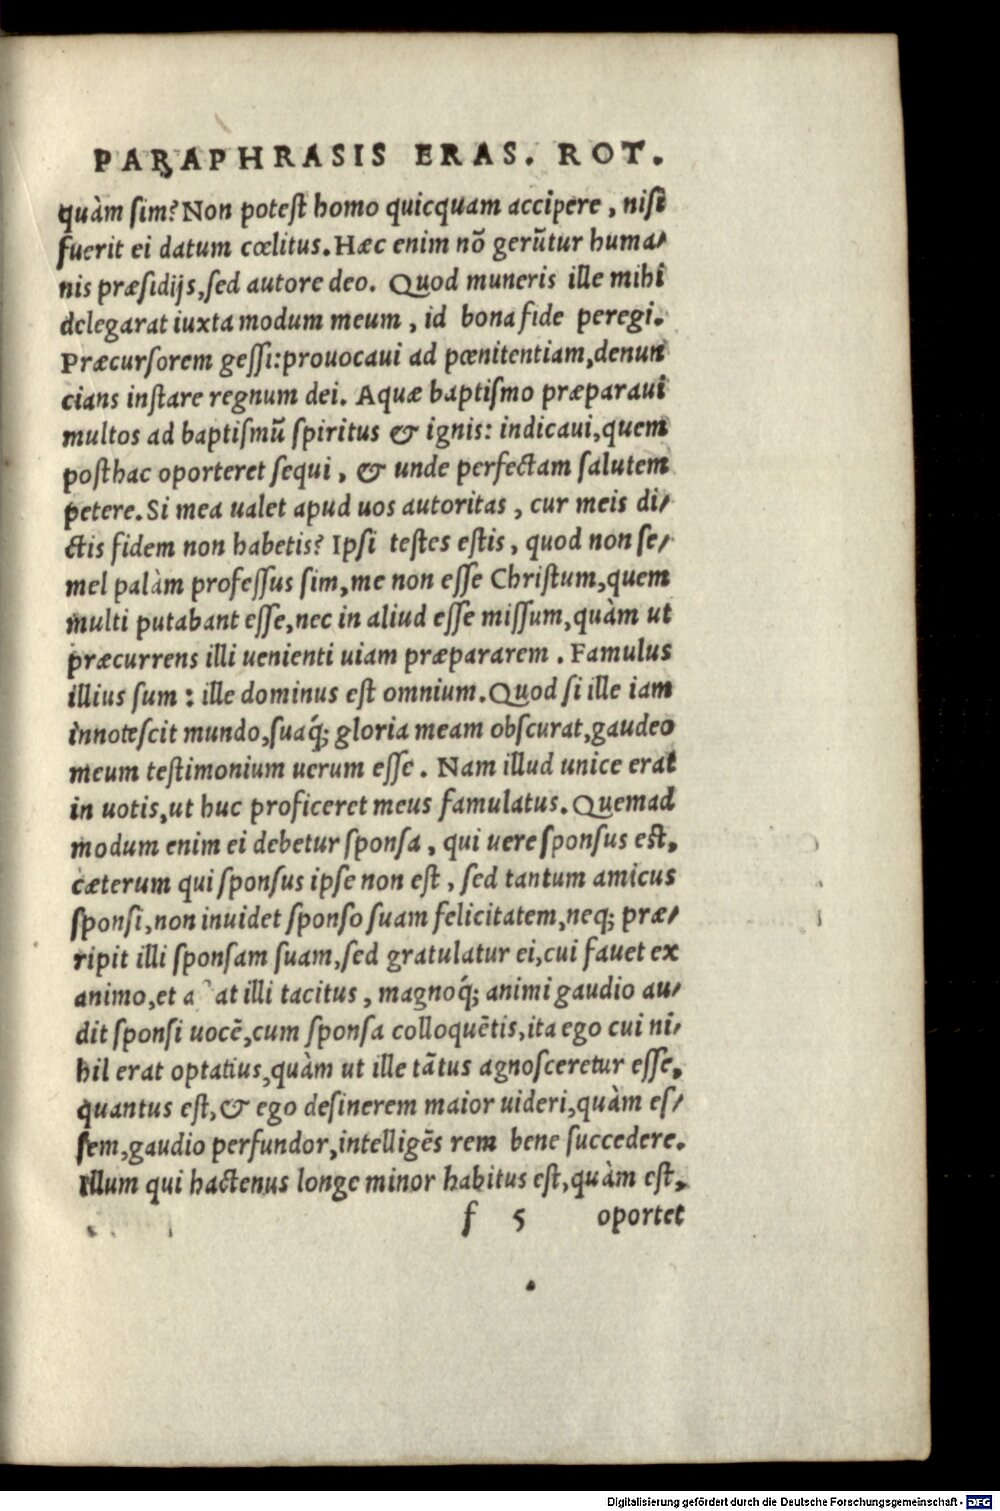 PARAPHRASIS ERAS. ROT.
quàm sim? Non potest homo quicquam accipere, nisi
fuerit ei datum cœlitus. Hæc enim nõ gerũtur huma-
nis præsidijs, sed autore deo. Quod muneris ille mihi
delegarat iuxta modum meum, id bona fide peregi.
Præcursorem gessi: prouocaui ad pœnitentiam, denun
cians instare regnum dei. Aquæ baptismo præparaui
multos ad baptismũ spiritus & ignis: indicaui, quem
posthac oporteret sequi, & unde perfectam salutem
petere. Si mea ualet apud uos autoritas, cur meis di-
ctis fidem non habetis? Ipsi testes estis, quod non se-
mel palàm professus sim, me non esse Christum, quem
multi putabant esse, nec in aliud esse missum, quàm ut
præcurrens illi uenienti uiam præpararem. Famulus
illius sum: ille dominus est omnium. Quod si ille iam
innotescit mundo, suaq́; gloria meam obscurat, gaudeo
meum testimonium uerum esse. Nam illud unice erat
in uotis, ut huc proficeret meus famulatus. Quemad
modum enim ei debetur sponsa, qui uere sponsus est,
cæterum qui sponsus ipse non est, sed tantum amicus
sponsi, non inuidet sponso suam felicitatem, neq; præ-
ripit illi sponsam suam, sed gratulatur ei, cui fauet ex
animo, et a at illi tacitus, magnoq́; animi gaudio au-
dit sponsi uocẽ, cum sponsa colloquẽtis, ita ego cui ni-
hil erat optatius, quàm ut ille tãtus agnosceretur esse,
quantus est, & ego desinerem maior uideri, quàm es-
sem, gaudio perfundor, intelligẽs rem bene succedere.
Illum qui hactenus longe minor habitus est, quàm est,
f 5 oportet
Digitalisierung gefördert durch die Deutsche Forschungsgemeinschaft - DFG